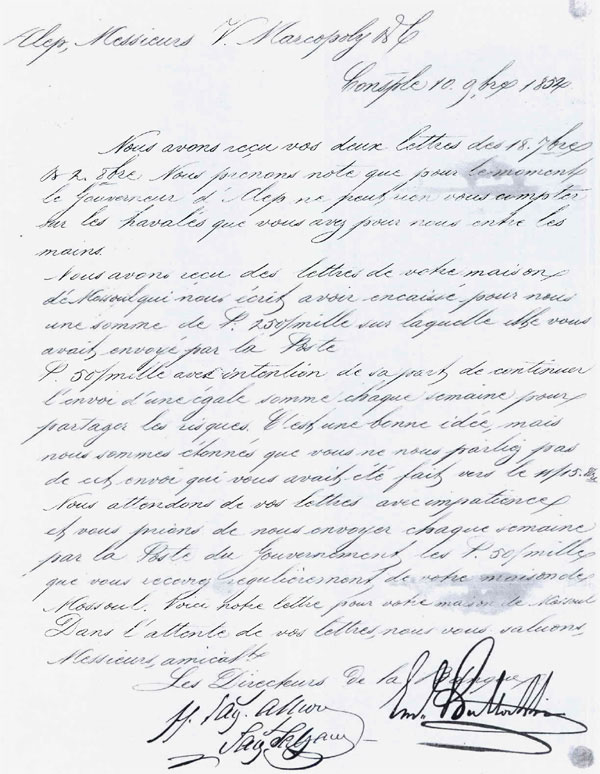 Alep, Messieurs V. Marcopoly & C
Constple 10. 9bre 1852
Nous avons reçu vos deux lettres des 18. 7bre
& 2. 8bre Nous prenons note que pour le moment
le Gouverneur d'Alep ne peut rien vous compter
sur les havalés que vous avez pour nous entre les
mains.
Nous avons reçu des lettres de votre maison
de Mossoul qui nous écrit avoir encaissé pour nous
une somme de P. 250/mille sur laquelle elle vous
avait envoyé par la Poste
P. 50/mille avec intention de sa part de continuer
l'envoi d'une égale somme chaque semaine pour
partager les risques. C'est une bonne idée mais
nous sommes étonnés que vous ne nous parliez pas
de cet envoi qui vous avait été fait vers le 11/15.
Nous attendons de vos lettres avec impatience
et vous prions de nous envoyer chaque semaine
par la Poste du Gouvernement les P. 50/mille
que vous recevez régulièrement de votre maison de
Mossoul. Voici notre lettre pour votre maison de Mossoul
Dans l'attente de vos lettres, nous vous saluons,
Messieurs, amicalt
Les Directeurs de la Banque